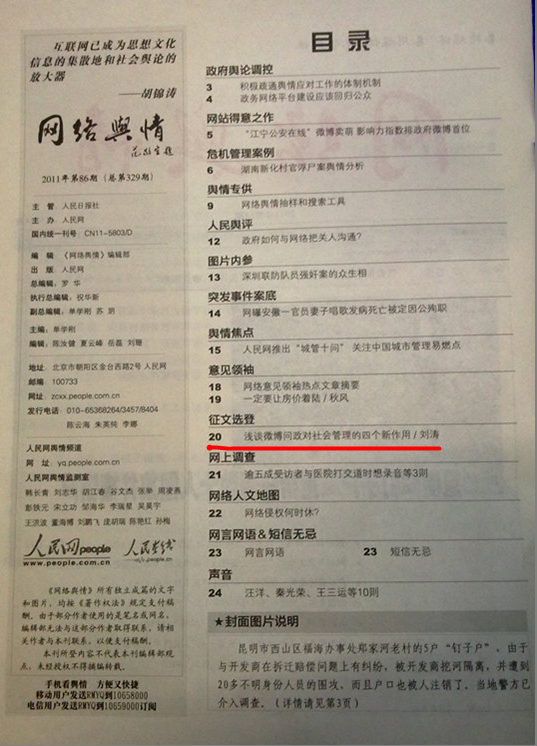 互联网已成为思想文化
信息的集散地和社会舆论的
放大器
——胡锦涛
网络舆情
2011年第86期（总第329期）
主 管 人民日报社
主 办 人民网
国内统一刊号：CN11-5803/D
编 辑 《网络舆情》编辑部
出 版 人民网
总编辑：罗 华
执行总编辑：祝华新
副总编辑：单学刚 苏 玥
主编：单学刚
编辑：陈汝健 夏云峰 岳磊 刘珊
地址：北京市朝阳区金台西路2号 人民网
邮编：100733
网址：zcxx.people.com.cn
发行电话：010-65368264/3457/8404
陈云海 朱英纯 李娜
人民网舆情频道
网 址：yq.people.com.cn
人民网舆情监测室
韩长青 刘志华 胡江春 谷文杰 张举 周凌燕
彭铁元 宋立功 邹海华 李瑞星 吴昊宇
王洪波 董海博 刘鹏飞 庞胡瑞 陈艳红 孙梅
人民网 people 人民在线
《网络舆情》所有独立成篇的文字
和图片，均按《著作权法》规定支付稿
酬。由于部分作者使用的是笔名或网名，
编辑部无法与这部分作者取得联系，请相
关作者与本刊联系，以便支付稿酬。
本刊所登内容不代表本刊编辑部观
点，未经授权不得摘编转载。
手机看舆情 方便又快捷
移动用户发送RMYQ到10658000
电信用户发送RMYQ到10659000订阅
目录
政府舆论调控
3 积极疏通舆情应对工作的体制机制
4 政务网络平台建设应该回归公众
网站得意之作
5 “江宁公安在线”微博卖萌 影响力指数排政府微博首位
危机管理案例
6 湖南新化村官浮尸案舆情分析
舆情专供
9 网络舆情抽样和搜索工具
人民舆评
12 政府如何与网络把关人沟通？
图片内参
13 深圳联防队员强奸案的众生相
突发事件案底
14 网曝安徽一官员妻子唱歌发病死亡被定因公殉职
舆情焦点
15 人民网推出“城管十问” 关注中国城市管理易燃点
意见领袖
18 网络意见领袖热点文章摘要
19 一定要让房价着陆 / 秋风
征文选登
20 浅谈微博问政对社会管理的四个新作用 / 刘涛
网上调查
21 逾五成受访者与医院打交道时想录音等3则
网络人文地图
22 网络侵权何时休?
网言网语＆短信无忌
23 网言网语 23 短信无忌
声音
24 汪洋、秦光荣、王三运等10则
★封面图片说明
昆明市西山区福海办事处郑家河老村的5户“钉子户”，由于
与开发商在拆迁赔偿问题上有纠纷，被开发商挖河隔离，并遭到
20多不明身份人员的围攻，而且户口也被人注销了。当地警方已
介入调查。（详情请见第3页）